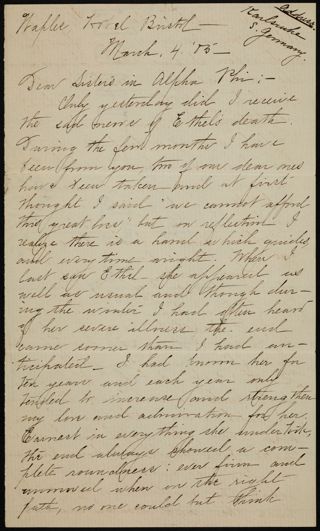 Naples Hotel Bristol –
Address
Karlsruhe
S. Germany.
March, 4 '85 –
Dear Sisters in Alpha Phi :–
Only yesterday did I receive
the sad news of Ethel's death.
During the few months I have
been from you, two of our dear ones
have been taken and at first
thought I said "we cannot afford
this great loss" but on reflection I
realize there is a hand which guides
and everytime aright. When I
last saw Ethel she appeared as
well as usual and though dur-
ing the winter I had often heard
of her severe illness the end
came sooner than I had an-
ticipated – I had known her for
ten years and each year only
tended to increase and strengthen
my love and admiration for her.
Earnest in everything she undertook,
the end always showed a com-
plete roundness: ever firm and
unmoved when in the right
path, no one could but think